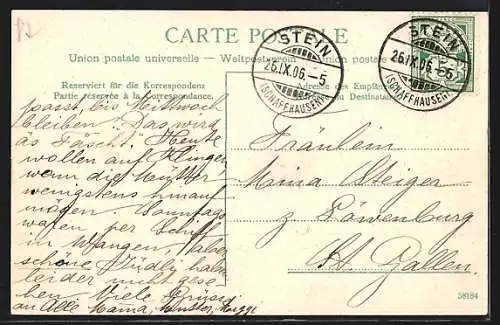 CARTE POSTALE
Union postale universelle – Weltpostverein – Unione postale
Reserviert für die Korrespondenz
Partie réservée à la correspondance.
Adresse des Empfängers
du Destinataire
STEIN
26.IX.06.–5
(SCHAFFHAUSEN)
STEIN
26.IX.06.–5
(SCHAFFHAUSEN)
passt, bis Mittwoch
bleiben. Das wird
as Fäscht. Heute
wollen auf Klingen
wenn die Mütter
wenigstens hinauf
mögen. Sonntags
waren per Schiff
in Wangen, aber
schöne Jüdli haben
leider nicht gese-
hen. Viele Grüsse
an Alle Mama,
Fräulein
Mina Steiger
z Löwenburg
St. Gallen.
58184